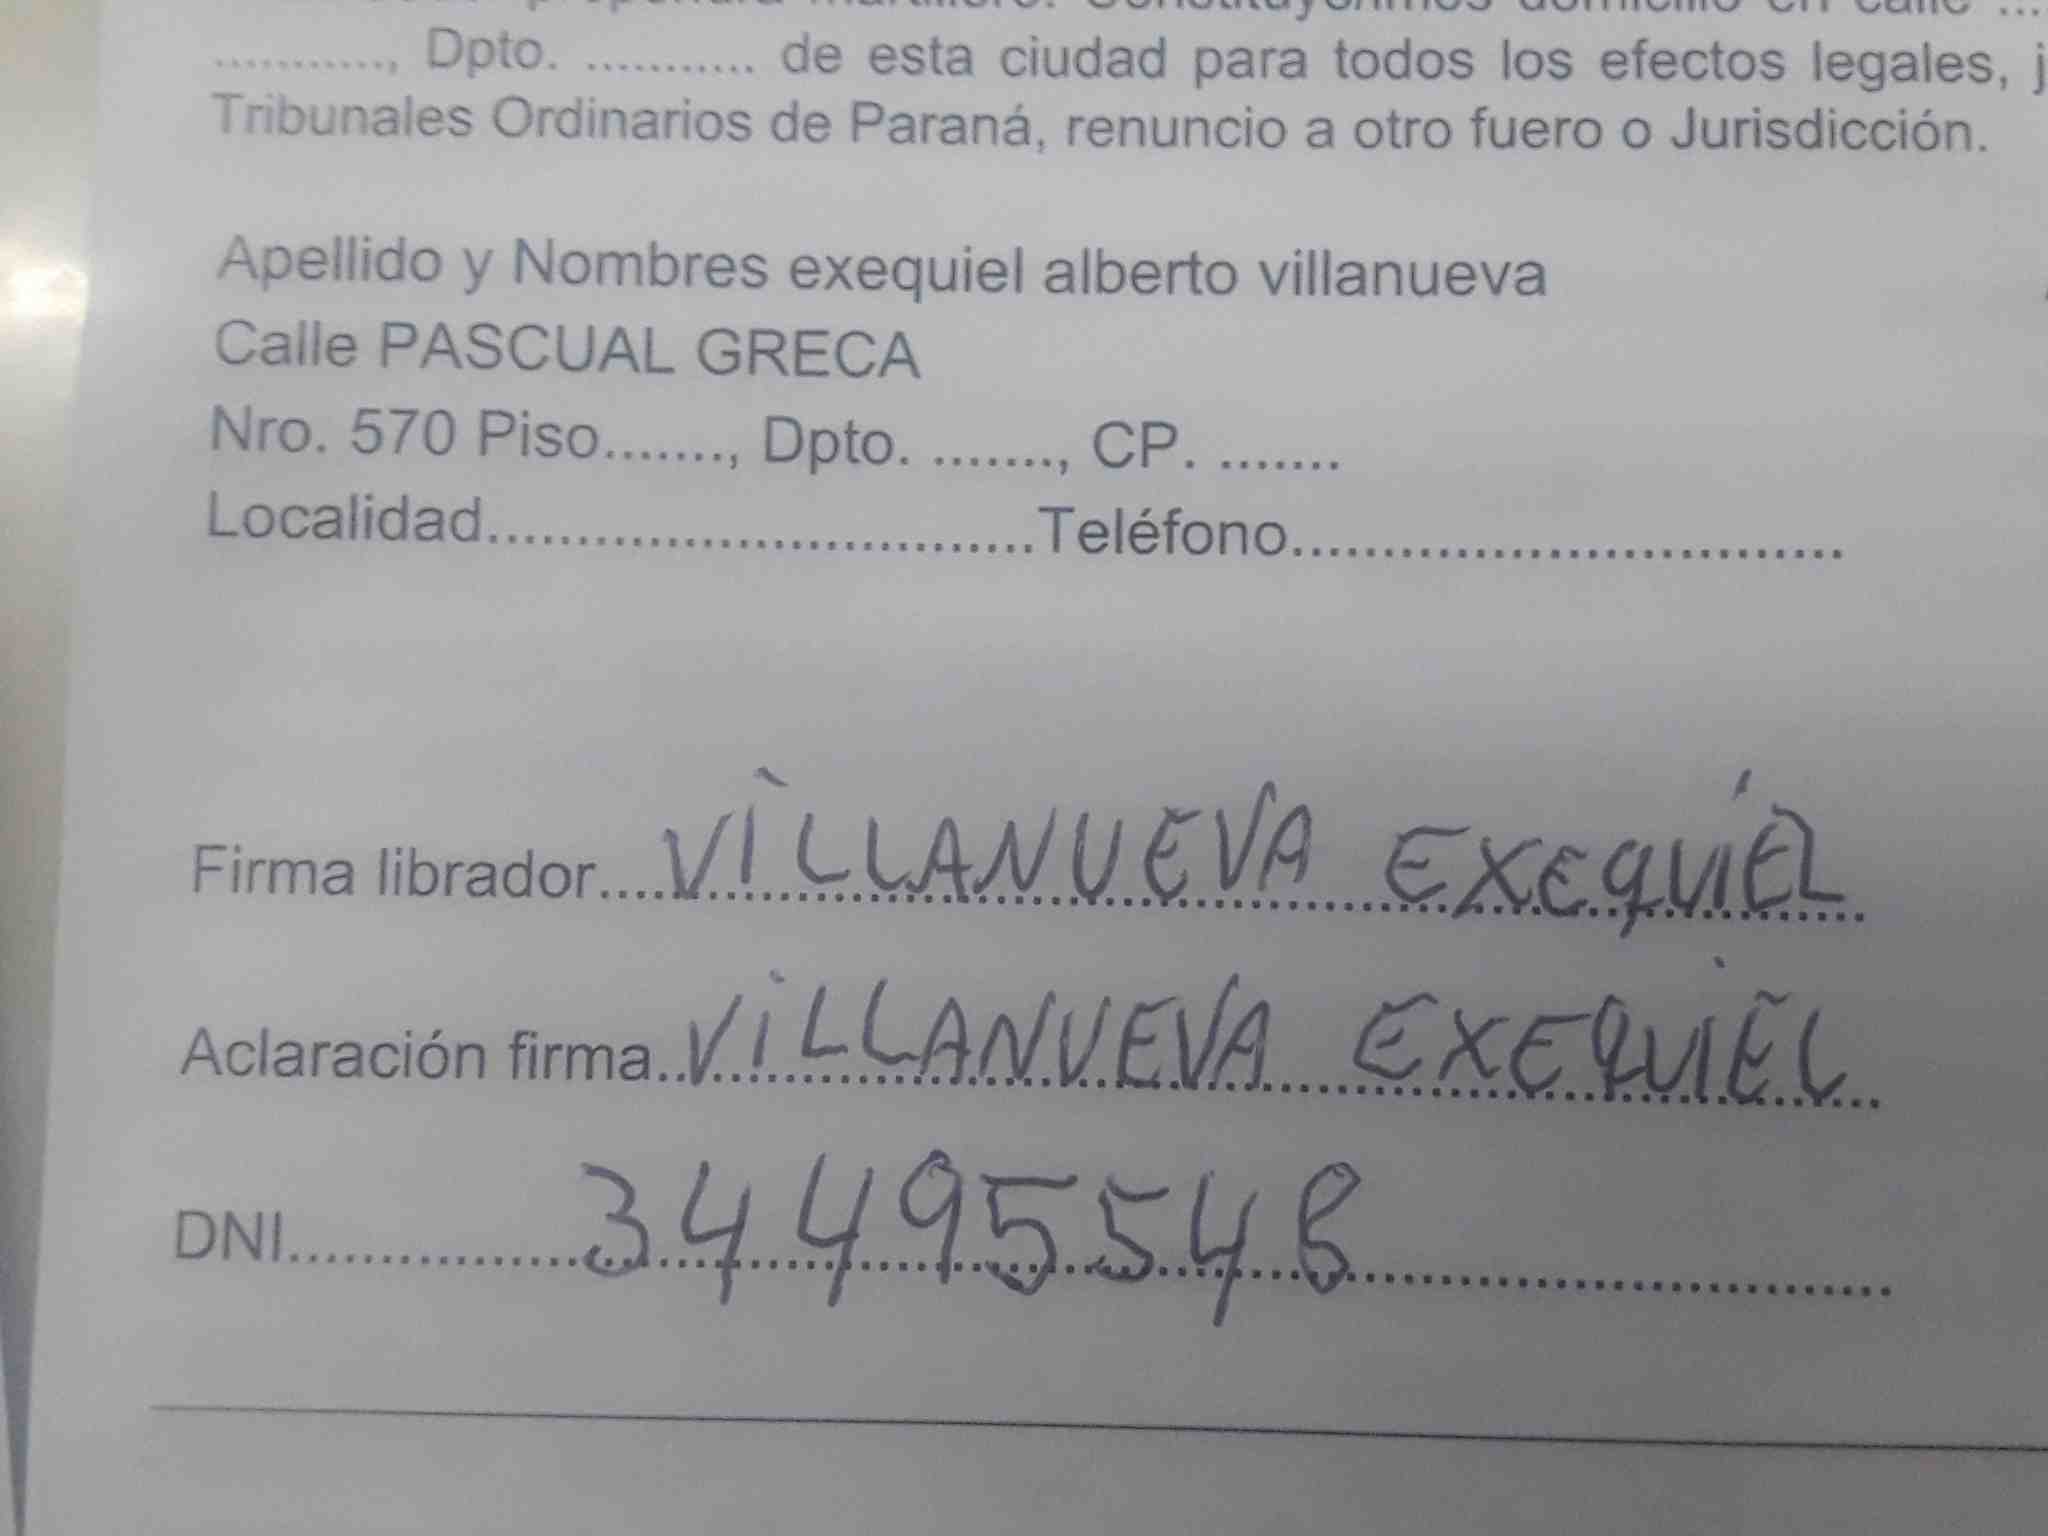 Constituyo/imos domicilio en calle ...
............, Dpto. ........... de esta ciudad para todos los efectos legales, j
Tribunales Ordinarios de Paraná, renuncio a otro fuero o Jurisdicción.
Apellido y Nombres exequiel alberto villanueva
Calle PASCUAL GRECA
Nro. 570 Piso......., Dpto. ......., CP. .......
Localidad...............................Teléfono...............................
Firma librador....VILLANUEVA EXEQUIEL
Aclaración firma..VILLANUEVA EXEQUIEL
DNI................34495548................